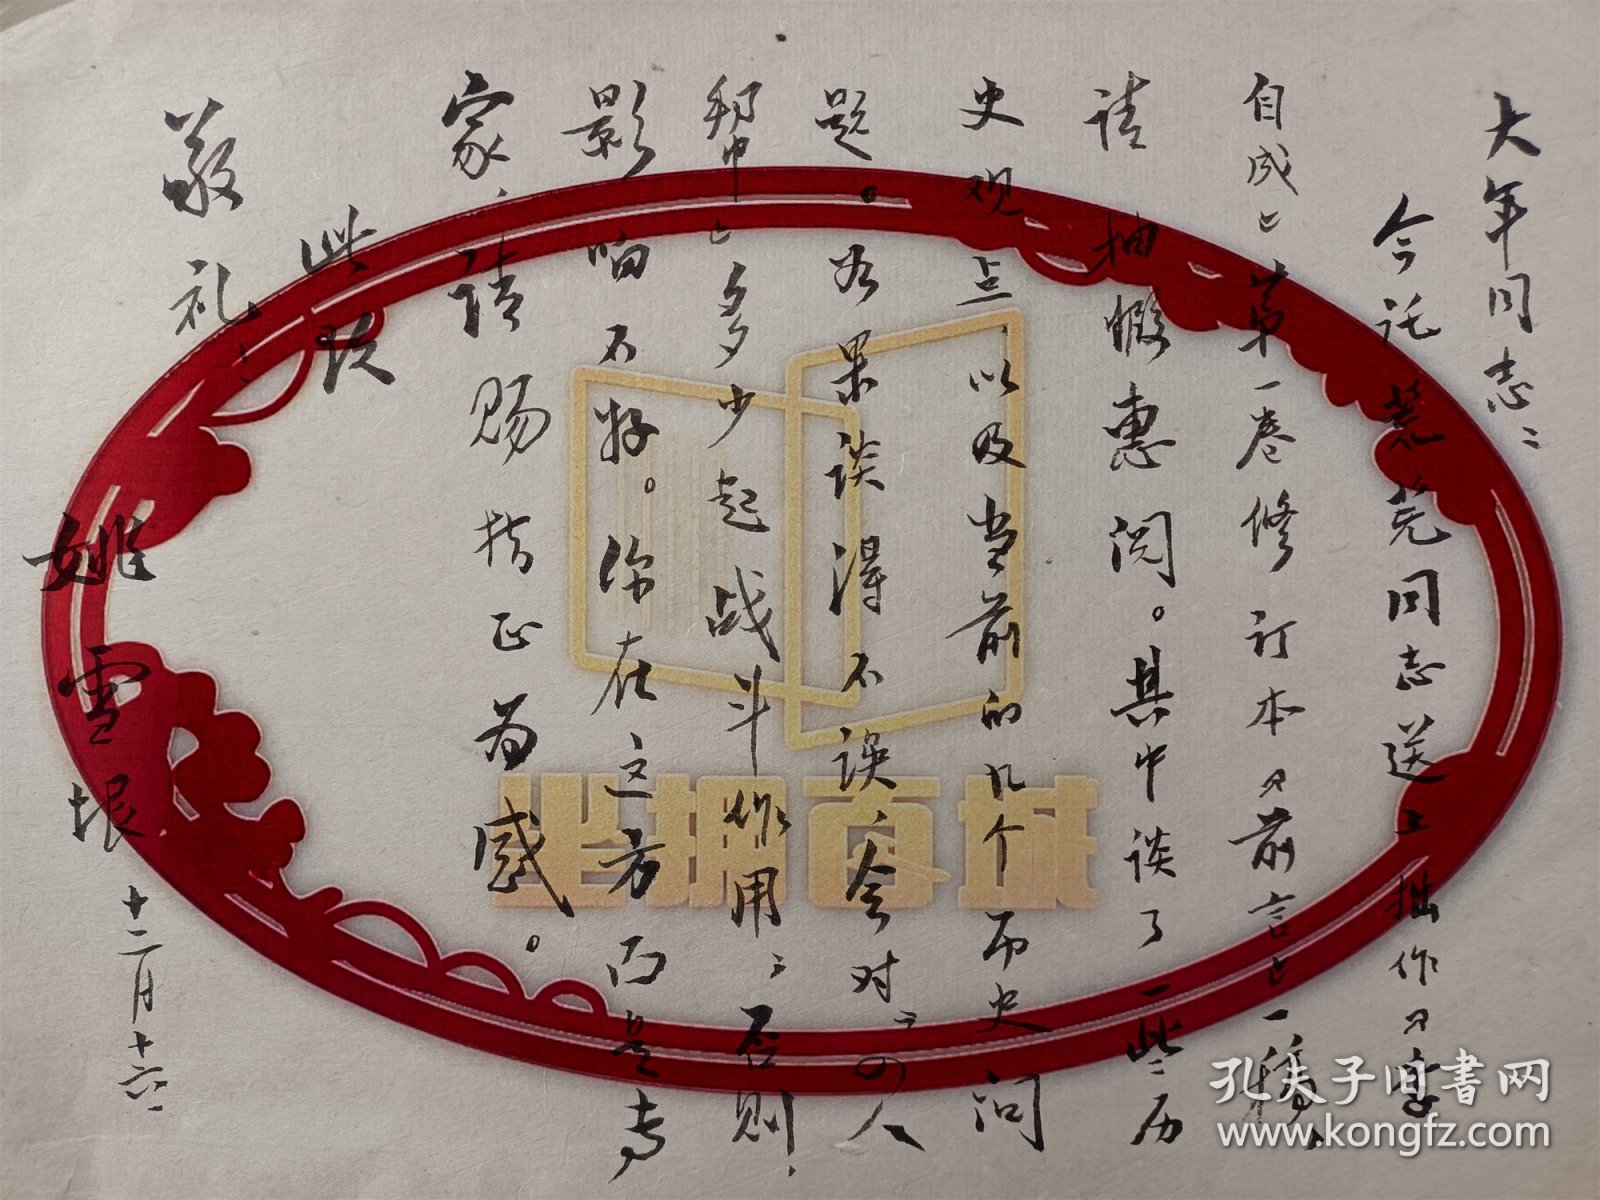 大年同志：
今托荒芜同志送上拙作《李
自成》第一卷修订本《前言》一稿，
请抽暇惠阅。其中谈了一些历
史观点，以及当前的几个历史问
题。如果谈得不误，会对“四人
帮”多少起战斗作用；否则，
影响不好。你在这方面是专
家，请赐指正为感。
此致
敬礼！
姚雪垠 十二月十六
孔夫子旧书网
www.kongfz.com